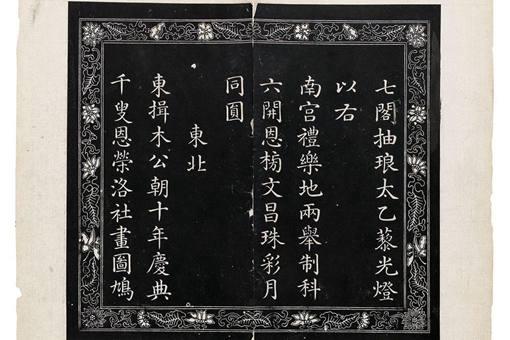 七閣抽琅太乙藜光燈
以右
南宫禮樂地兩舉制科
六開恩榜文昌珠彩月
同圓
東北
東揖木公朝十年慶典
千叟恩榮洛社畫圖鳩